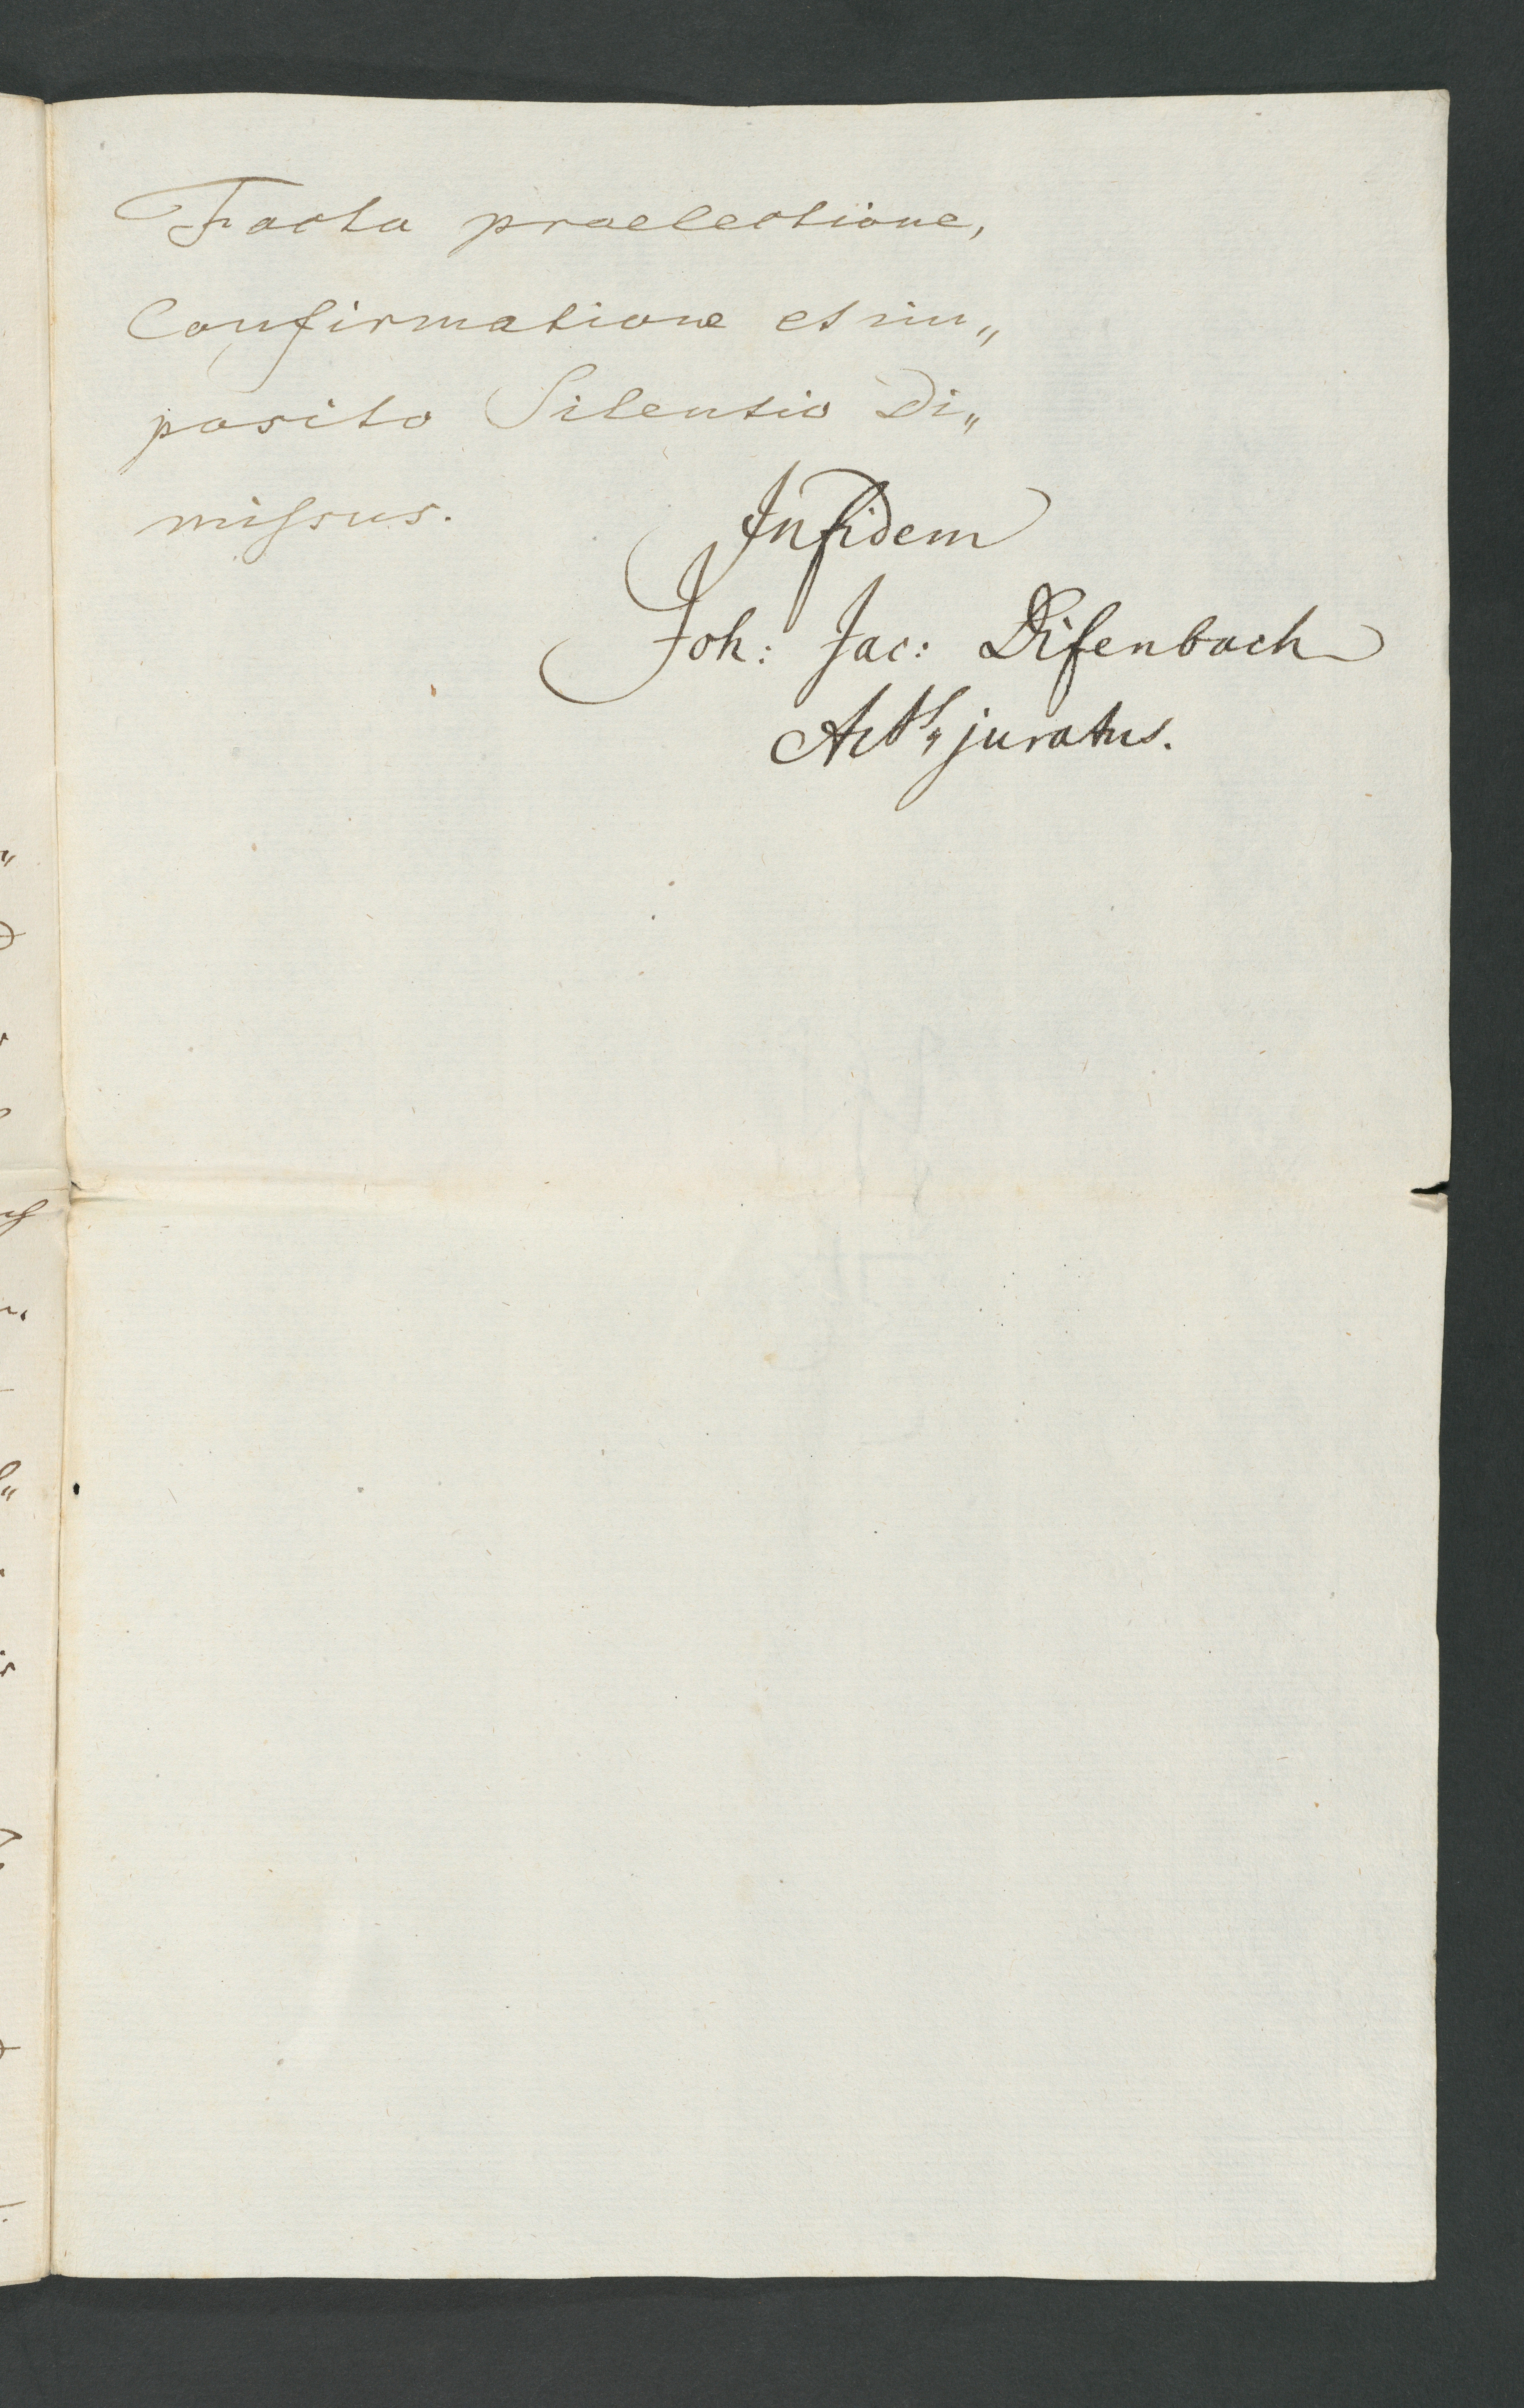 Facta praelectione,
Confirmatione et im„
posito Silentio Di„
missus.
In fidem
Joh: Jac: Difenbach
juratus.